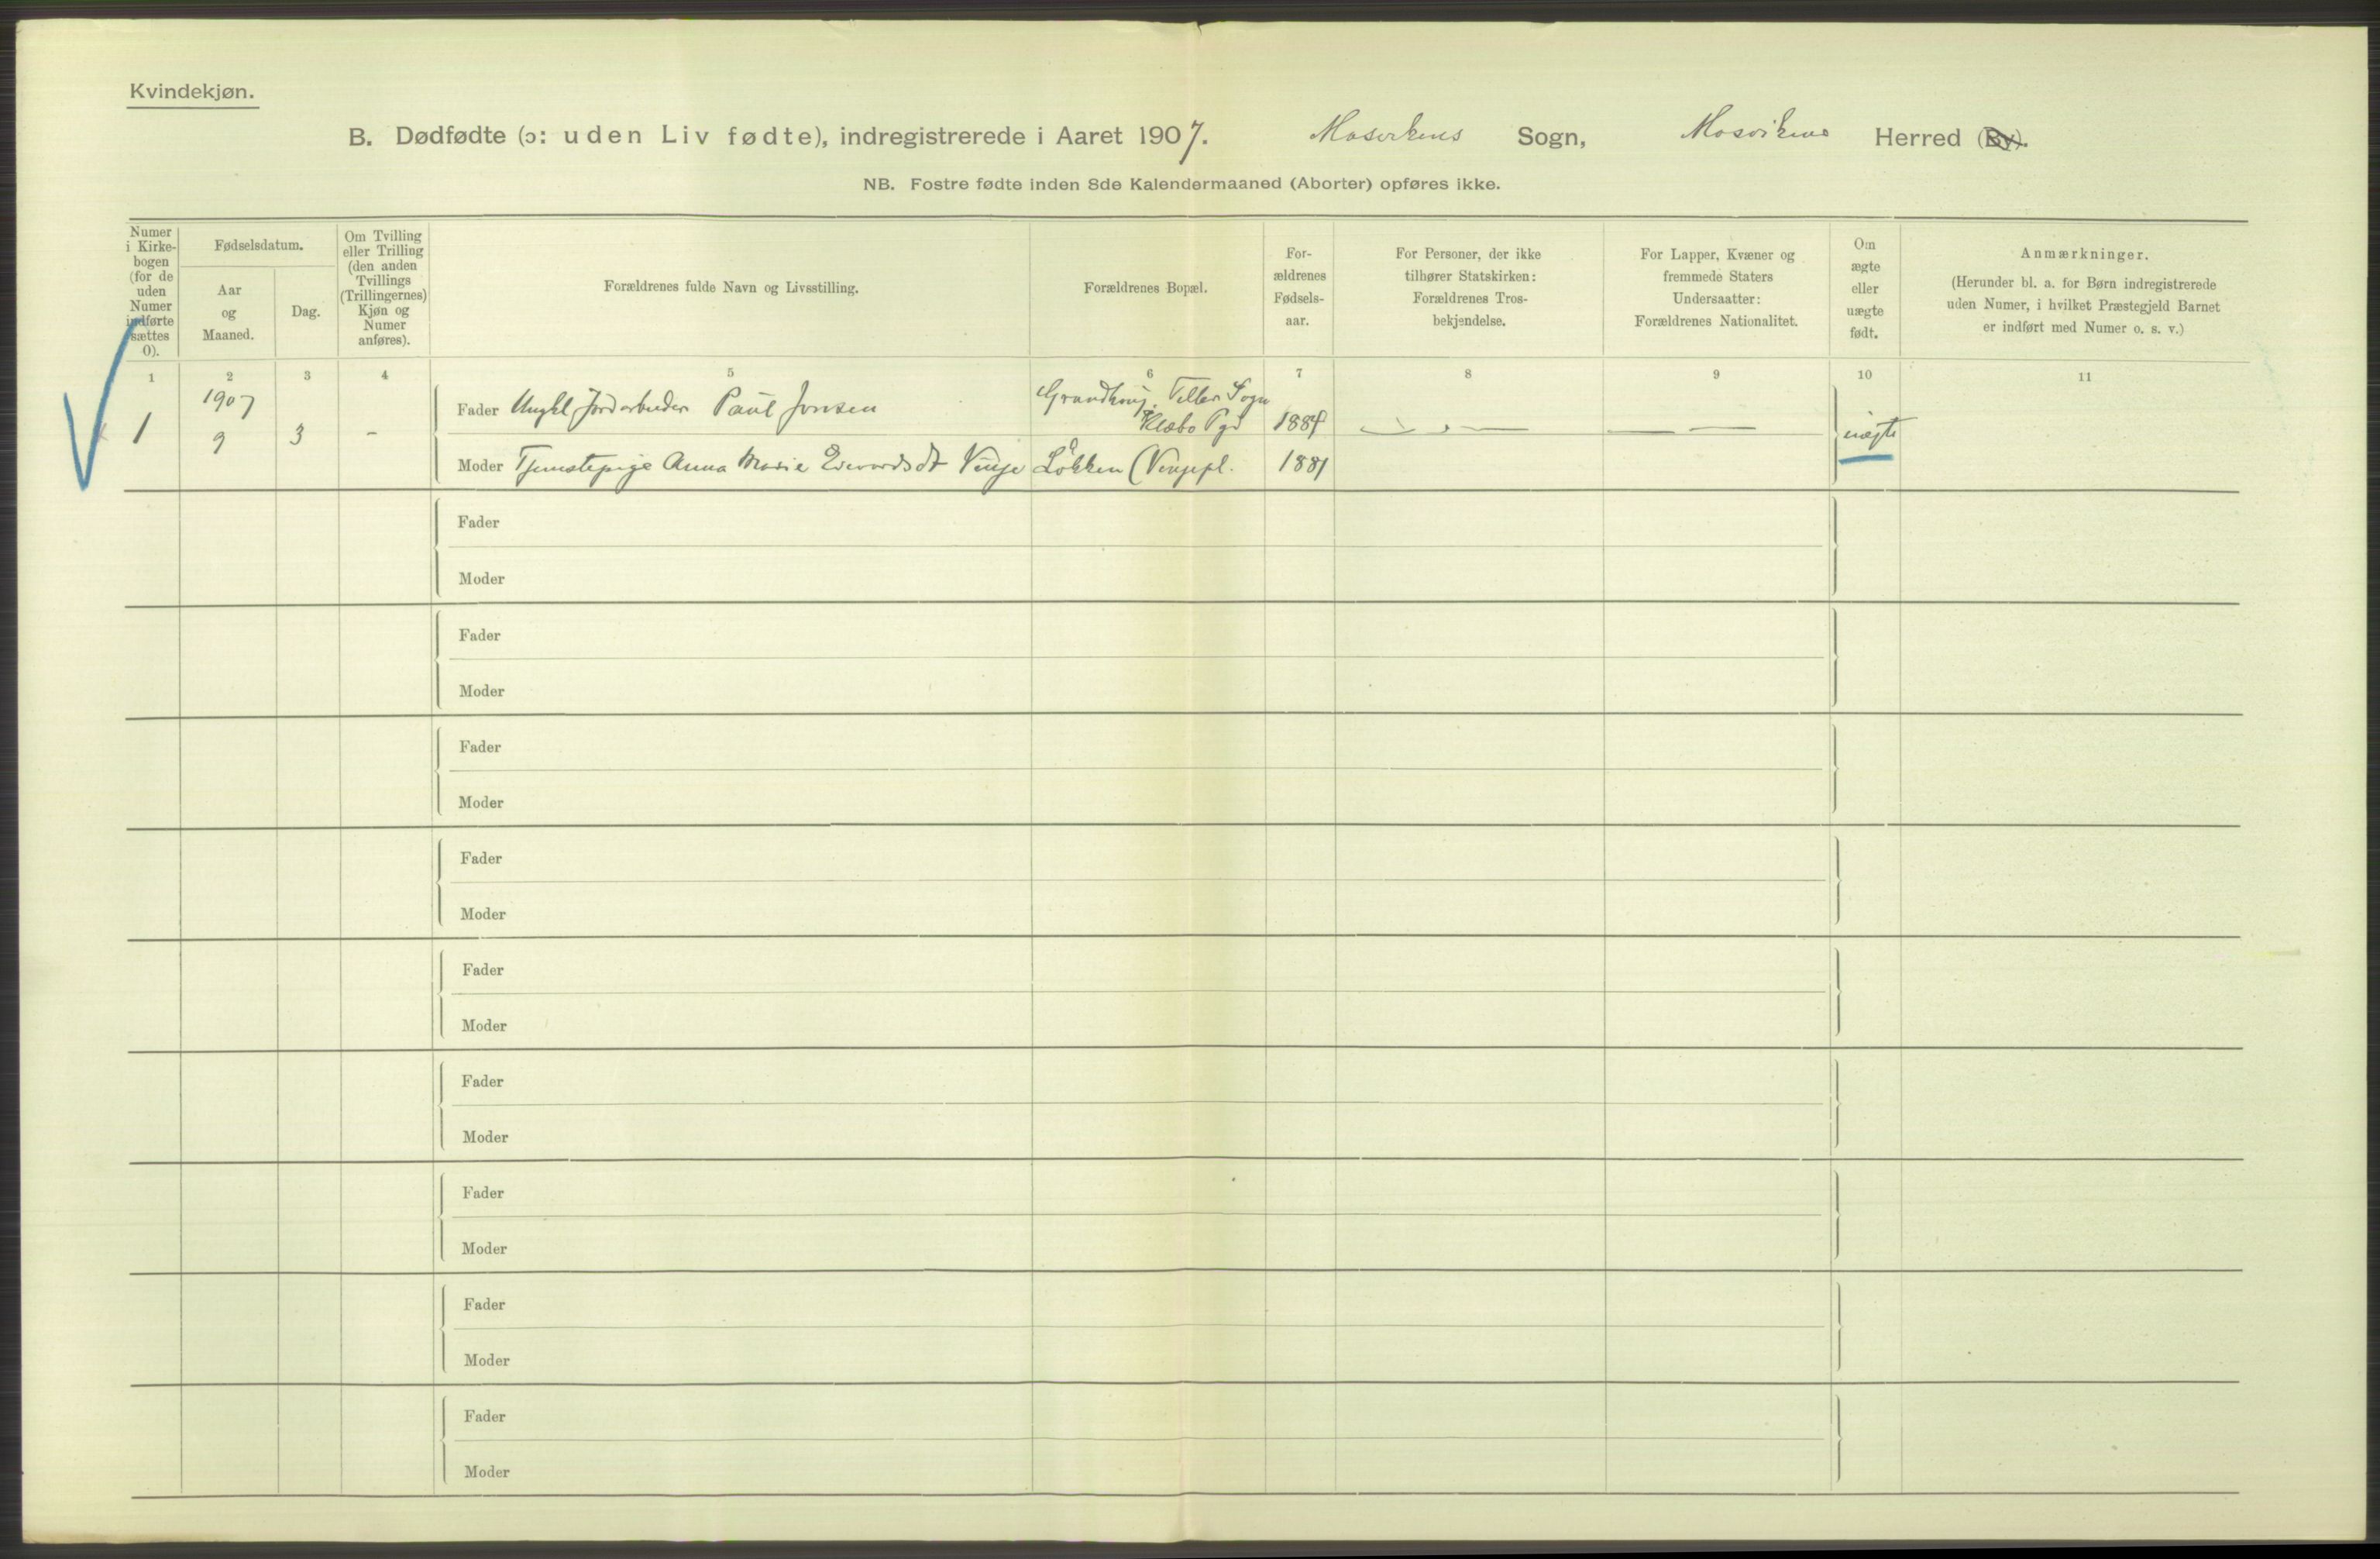 Kvindekjøn.
B. Dødfødte (ɔ: uden Liv fødte), indregistrerede i Aaret 1907. Mosvikens Sogn, Mosvikens Herred (By).
NB. Fostre fødte inden 8de Kalendermaaned (Aborter) opføres ikke.
Numer
i Kirke-
bogen
(for de
uden
Numer
indførte
sættes
0).
Fødselsdatum.
Aar
og
Maaned.
Dag.
Om Tvilling
eller Trilling
(den anden
Tvillings
(Trillingernes)
Kjøn og
Numer
anføres).
Forældrenes fulde Navn og Livsstilling.
Forældrenes Bopæl.
For-
ældrenes
Fødsels-
aar.
For Personer, der ikke
tilhører Statskirken:
Forældrenes Tros-
bekjendelse.
For Lapper, Kvæner og
fremmede Staters
Undersaatter:
Forældrenes Nationalitet.
Om
ægte
eller
uægte
født.
Anmærkninger.
(Herunder bl. a. for Børn indregistrerede
uden Numer, i hvilket Præstegjeld Barnet
er indført med Numer o. s. v.)
1 2 3 4 5 6 7 8 9 10 11
1
1907
9
3
-
Fader Ungkl Jordarbeider Paul Jonsen
Tiller Sogn
Klæbo Pgd
188
Moder Tjenestepige Anna Marie Edvardsdt Vinje
Løkken (Vinjepl.
1881
uægte
Fader
Moder
Fader
Moder
Fader
Moder
Fader
Moder
Fader
Moder
Fader
Moder
Fader
Moder
Fader
Moder
Fader
Moder